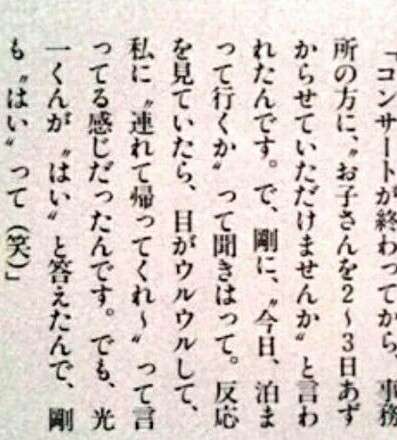 「コンサートが終わってから、事務
所の方に、〝お子さんを2〜3日あず
からせていただけませんか〟と言わ
れたんです。で、剛に、〝今日、泊ま
って行くか〟って聞きはって。反応
を見ていたら、目がウルウルして、
私に〝連れて帰ってくれ〜〟って言
ってる感じだったんです。でも、光
一くんが〝はい〟と答えたんで、剛
も〝はい〟って（笑）」